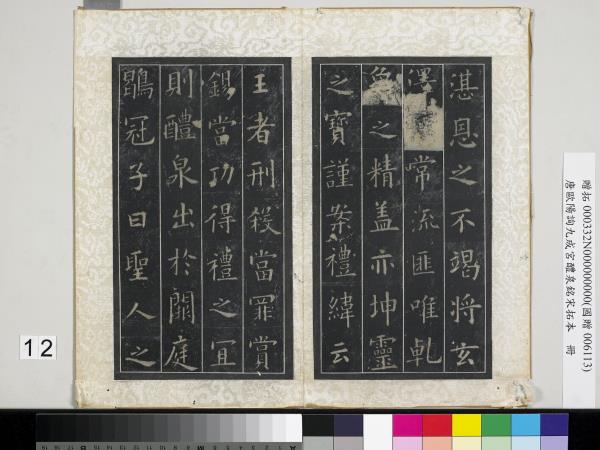 湛恩之不竭將玄
澤常流匪唯乾
象之精蓋亦坤靈
之寶謹案禮緯云
王者刑殺當罪賞
錫當功得禮之宜
則醴泉出於闕庭
鶡冠子曰聖人之
贈拓 000332N000000000(國贈 006113)
唐歐陽詢九成宮醴泉銘宋拓本 冊
12